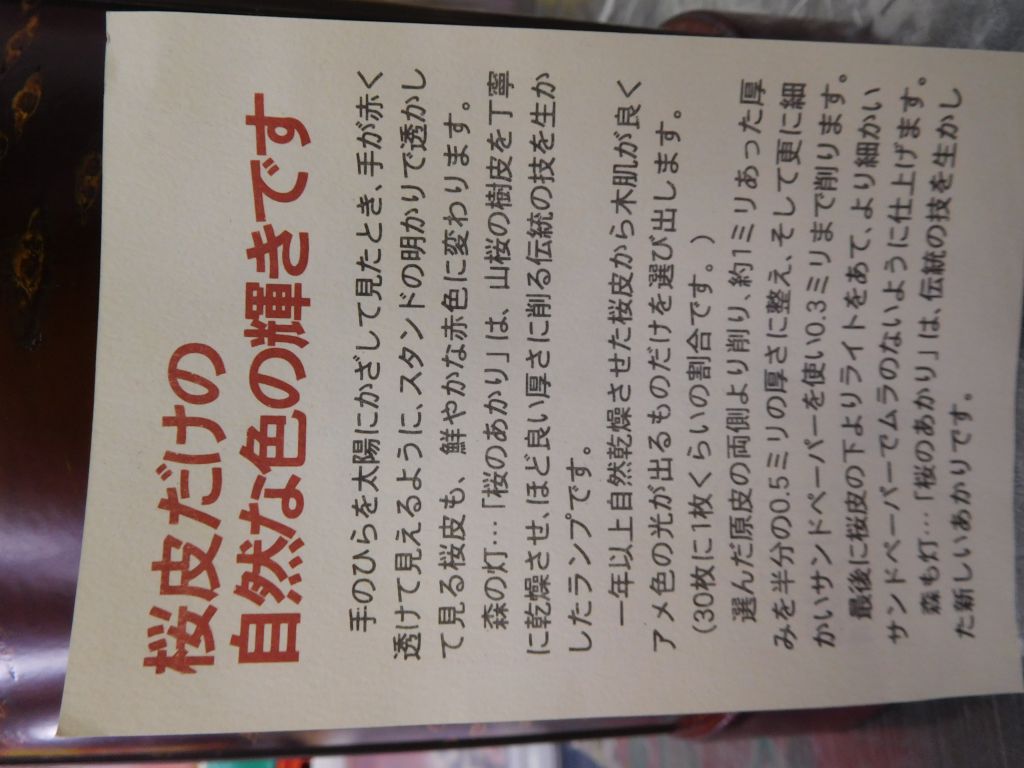 桜皮だけの
自然な色の輝きです
手のひらを太陽にかざして見たとき、手が赤く
透けて見えるように、スタンドの明かりで透かし
て見る桜皮も、鮮やかな赤色に変わります。
森の灯…「桜のあかり」は、山桜の樹皮を丁寧
に乾燥させ、ほど良い厚さに削る伝統の技を生か
したランプです。
一年以上自然乾燥させた桜皮から木肌が良く
アメ色の光が出るものだけを選び出します。
(30枚に1枚くらいの割合です。)
選んだ原皮の両側より削り、約1ミリあった厚
みを半分の0.5ミリの厚さに整え、そして更に細
かいサンドペーパーを使い0.3ミリまで削ります。
最後に桜皮の下よりライトをあて、より細かい
サンドペーパーでムラのないように仕上げます。
森も灯…「桜のあかり」は、伝統の技を生かし
た新しいあかりです。